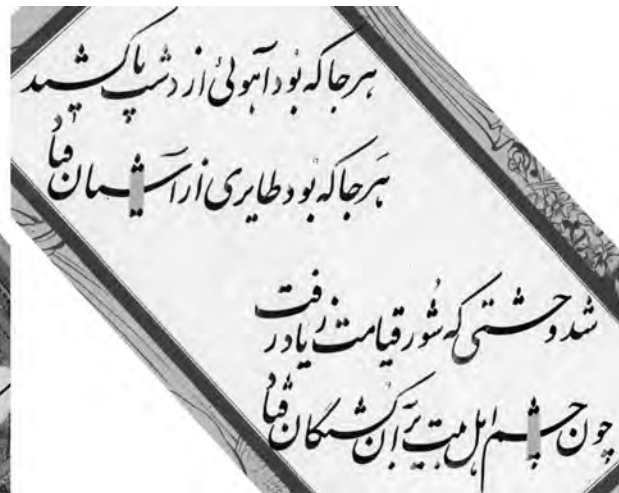 هرجا که بود آهوئی از دشت پا کشید
هرجا که بود طایری از آشیان فتاد
شد وحشتی که شور قیامت ز یاد رفت
چون چشم اهل بیت بر آن کشتگان فتاد